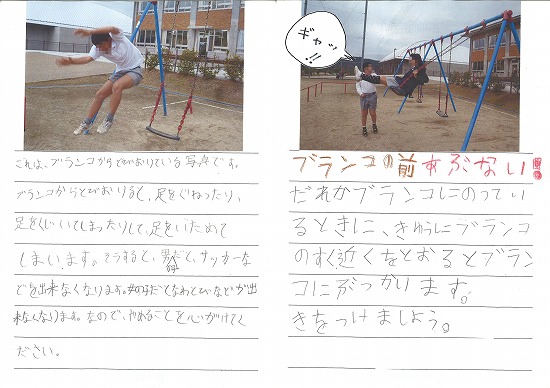 これは、ブランコからとびおりている写真です。
ブランコからとびおりると、足をひねったり、
足をくじいてしまったりして、足をいためて
しまいます。そうすると、男子だと、サッカーな
どを出来なくなります。女の子だとなわとびなどが出
来なくなります。なので、やめることを心がけてく
ださい。
ギャッ!!
ブランコの前あぶない!!
だれかブランコにのってい
るときに、きゅうにブランコ
のすぐ近くをとおるとブラン
コにぶつかります。
きをつけましょう。